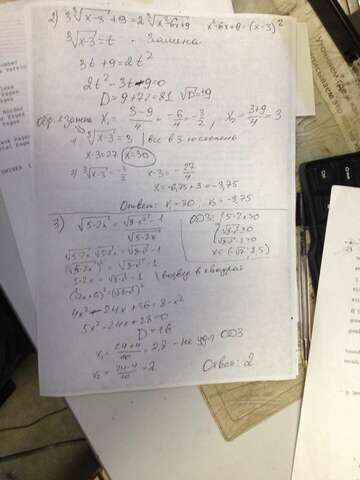 2) 3∛(x-3) + 9 = 2∛(x²-6x+9)   x²-6x+9=(x-3)²
∛(x-3) = t - Замена
3t + 9 = 2t²
2t² - 3t - 9 = 0
D = 9 + 72 = 81 √D = ±9
обр. замена x₁ = (3-9)/4 = -6/4 = -3/2, x₂ = (3+9)/4 = 3
1) ∛(x-3) = 3 | все в 3 степень
x-3=27 x=30
2) ∛(x-3) = -3/2   x-3 = -27/4
x = -6,75+3 = -3,75
Ответ: x₁ = 30, x₂ = -3,75
3) √(5-2x) = (√(8-x²) - 1)/√(5-2x)
ОДЗ: 5-2x>0
√(5-2x) · √(5-2x) = √(8-x²) - 1
(√(5-2x))² = √(8-x²) - 1
5-2x = √(8-x²) - 1 | возвед в квадрат
(-2x+6)² = (√(8-x²))²
4x² - 24x + 36 = 8 - x²
5x² - 24x + 28 = 0
D = 16
x₁ = (24+4)/10 = 2,8 - не удов ОДЗ
x₂ = (24-4)/10 = 2
Ответ: 2